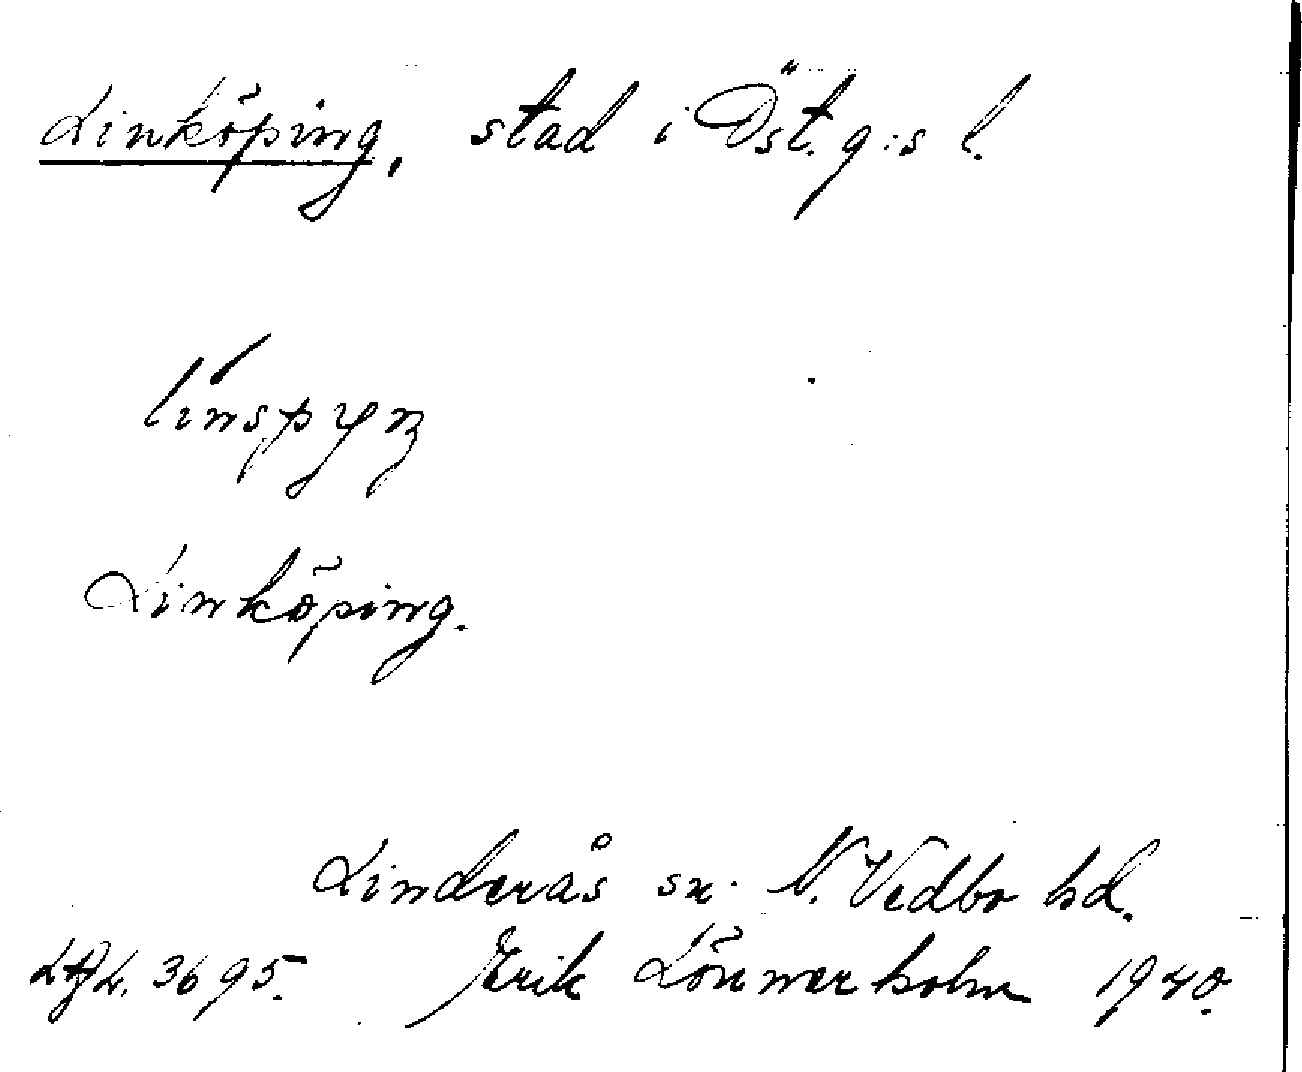 Linköping, stad i Östg:s l.
Linköping.
Linderås sn. N. Vedbo hd.
3695. Erik Lönnerholm 1940.